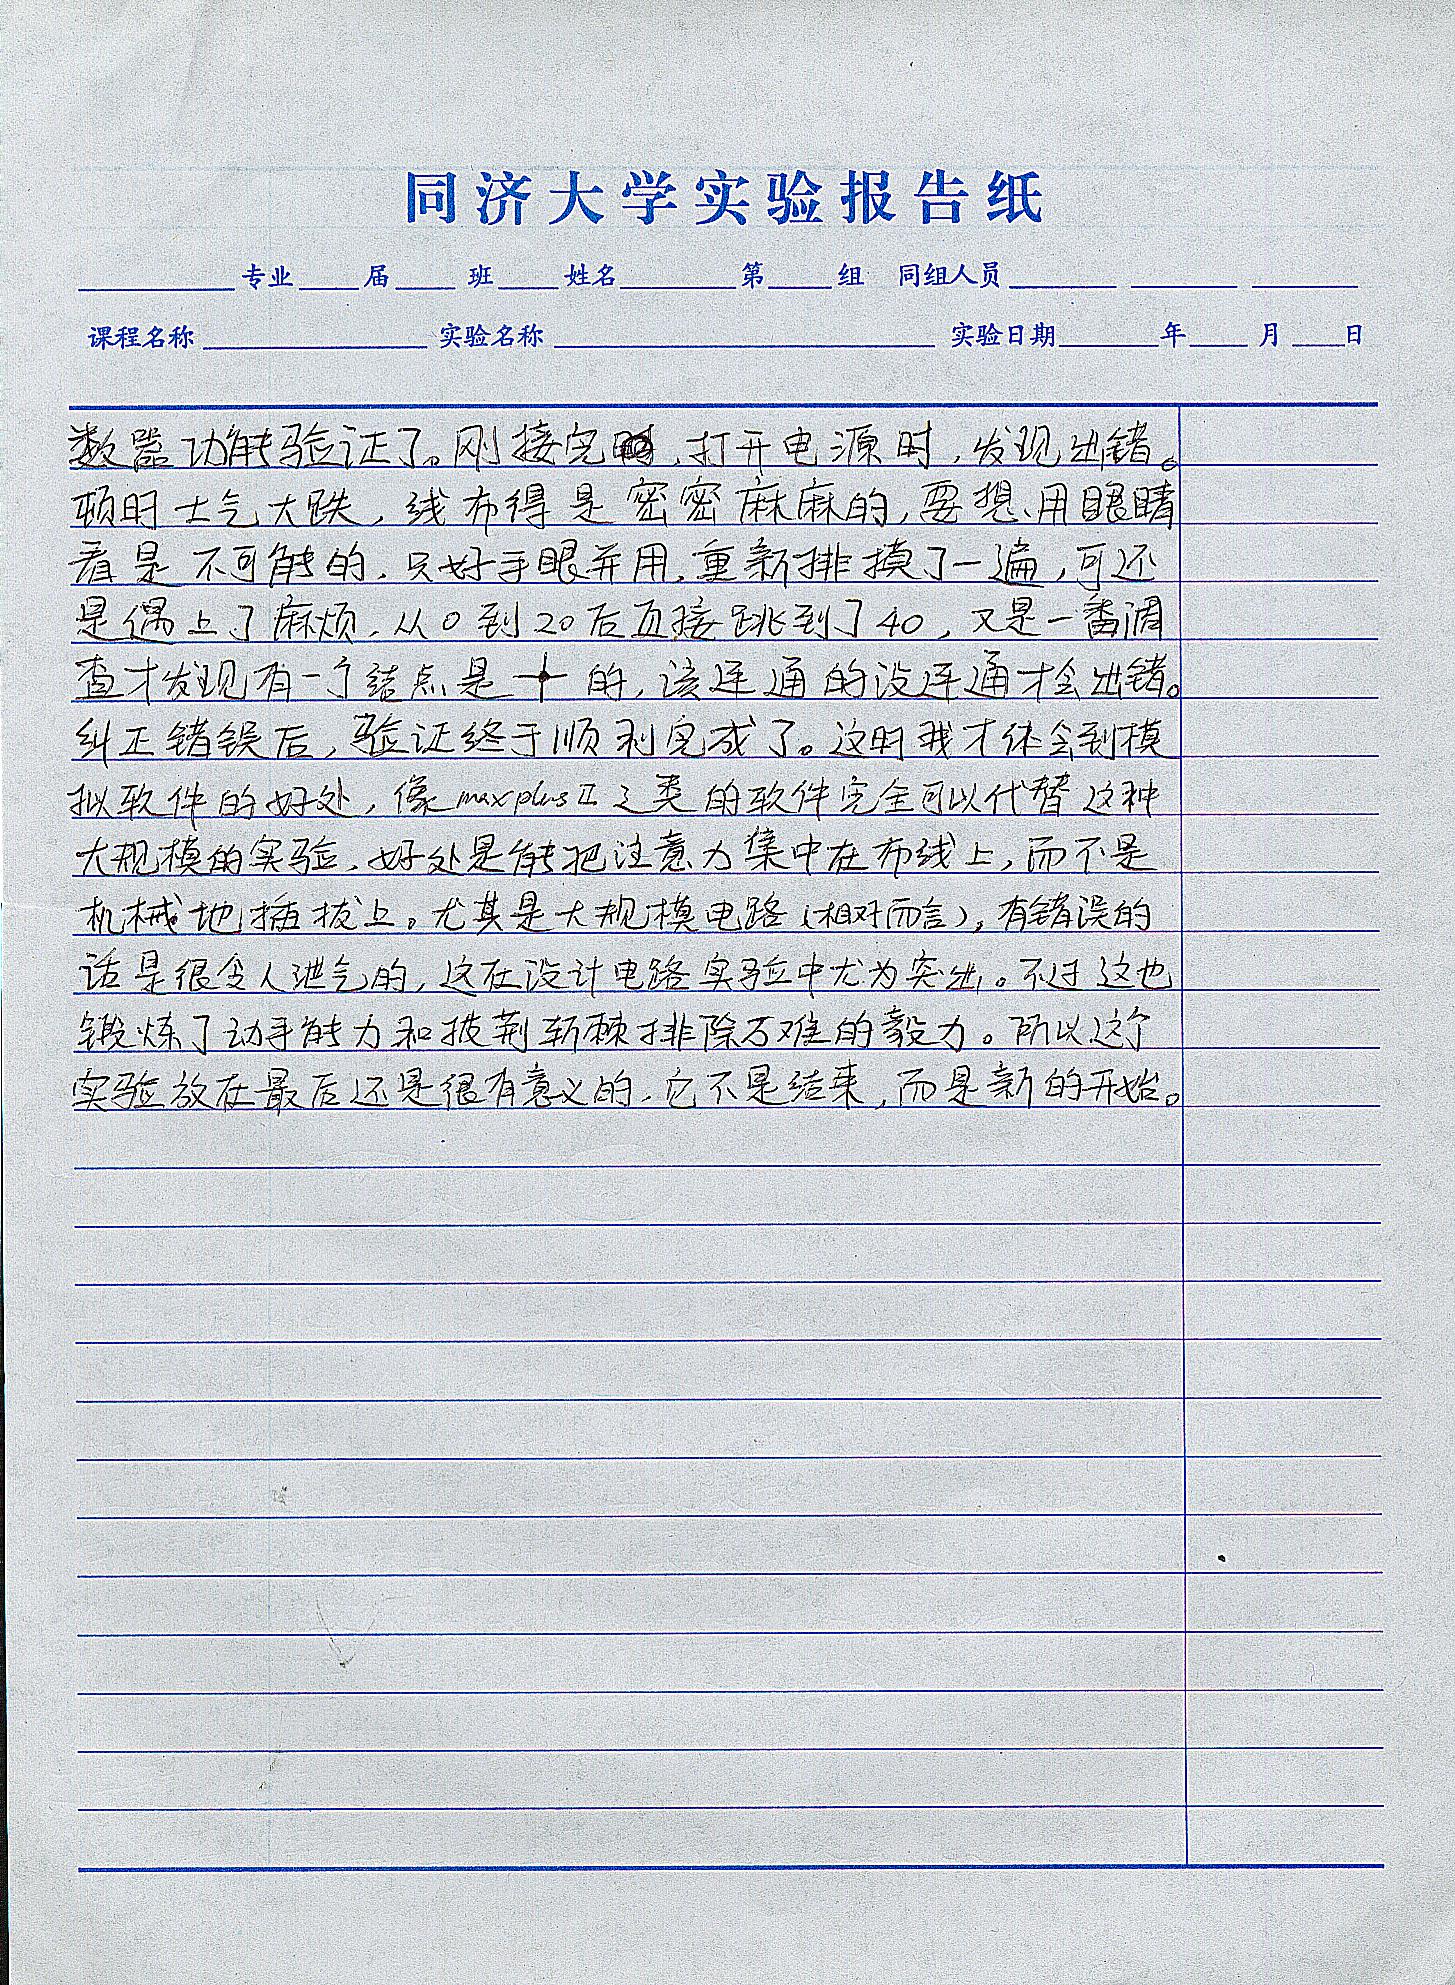 同济大学实验报告纸
专业 届 班 姓名 第 组 同组人员
课程名称 实验名称 实验日期 年 月 日
数器功能验证了。刚接完,打开电源时,发现出错。
顿时士气大跌,线布得是密密麻麻的,要想用眼睛
看是不可能的,只好手眼并用,重新排摸了一遍,可还
是偶上了麻烦,从0到20后直接跳到了40,又是一番调
查才发现有一个结点是十的,该连通的没连通才会出错。
纠正错误后,验证终于顺利完成了。这时我才体会到模
拟软件的好处,像maxplusⅡ之类的软件完全可以代替这种
大规模的实验,好处是能把注意力集中在布线上,而不是
机械地插拔上。尤其是大规模电路(相对而言),有错误的
话是很令人泄气的,这在设计电路实验中尤为突出。不过这也
锻炼了动手能力和披荆斩棘排除万难的毅力。所以这个
实验放在最后还是很有意义的,它不是结束,而是新的开始。